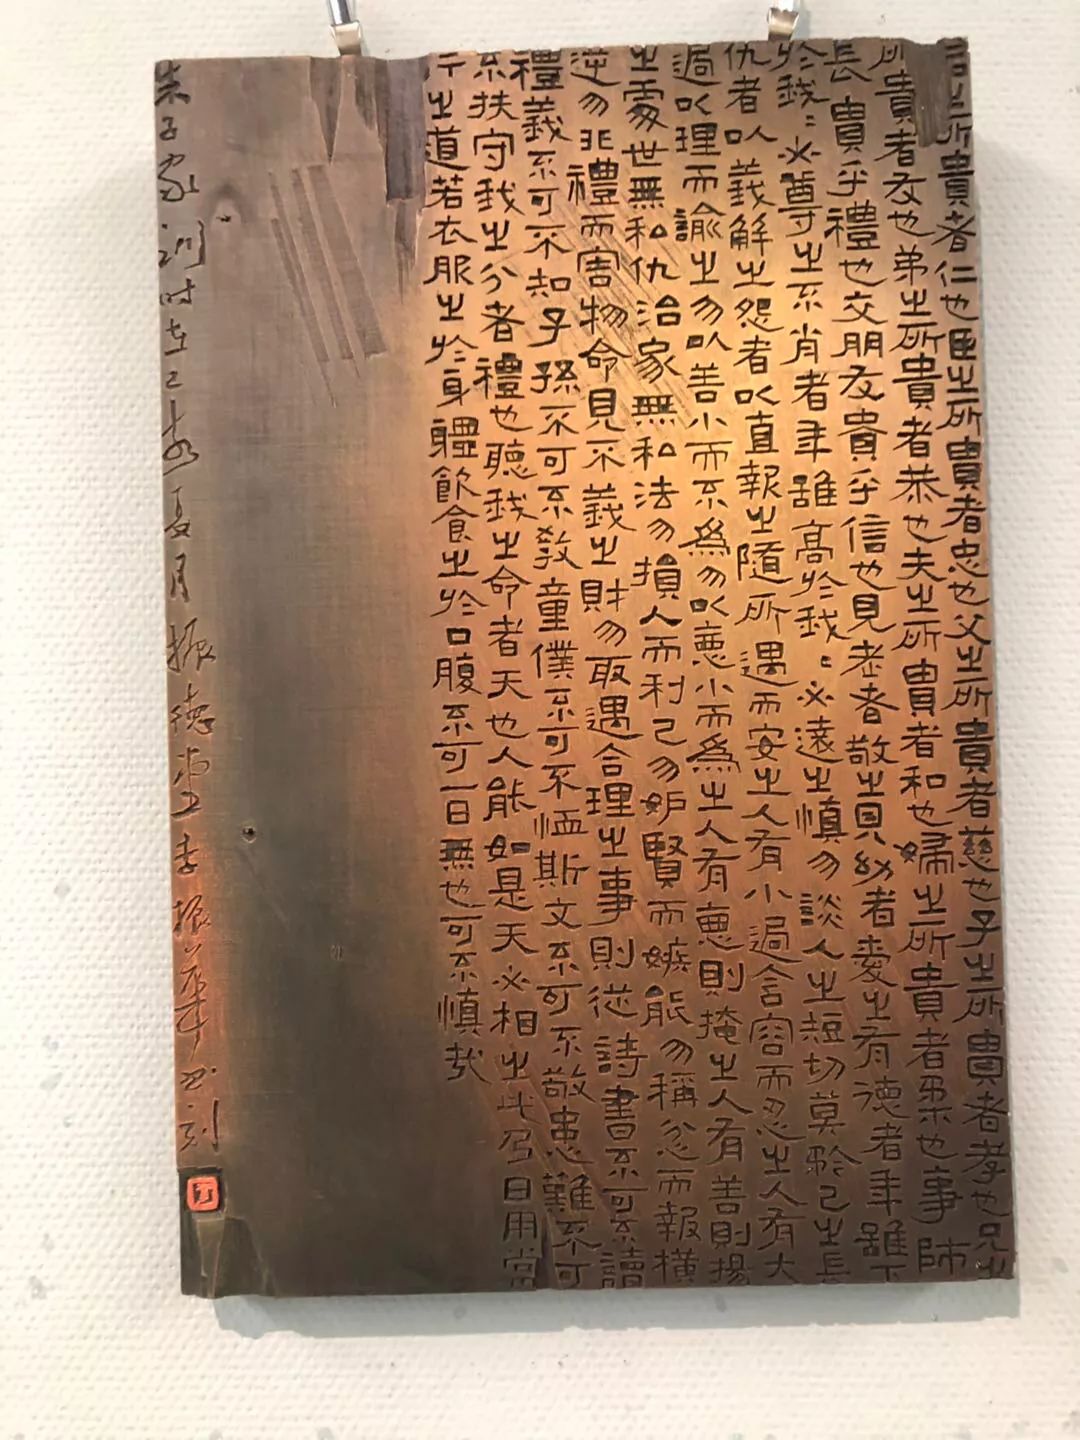 君之所貴者仁也臣之所貴者忠也父之所貴者慈也子之所貴者孝也兄之
所貴者友也弟之所貴者恭也夫之所貴者和也婦之所貴者柔也事師
長貴乎禮也交朋友貴乎信也見老者敬之見幼者愛之有德者年雖下
於我〻必尊之不肖者年雖高於我〻必遠之慎勿談人之短切莫矜己之長
仇者以義解之怨者以直報之隨所遇而安之人有小過含容而忍之人有大
過以理而諭之勿以善小而不為勿以惡小而為之人有惡則掩之人有善則揚
之處世無私仇治家無私法勿損人而利己勿妒賢而嫉能勿稱忿而報橫
逆勿非禮而害物命見不義之財勿取遇合理之事則從詩書不可不讀
禮義不可不知子孫不可不教童僕不可不恤斯文不可不敬患難不可
不扶守我之分者禮也聽我之命者天也人能如是天必相之此乃日用當
行之道若衣服之於身體飲食之於口腹不可一日無也可不慎哉
朱子家训时在己亥夏月振德李振華书刻